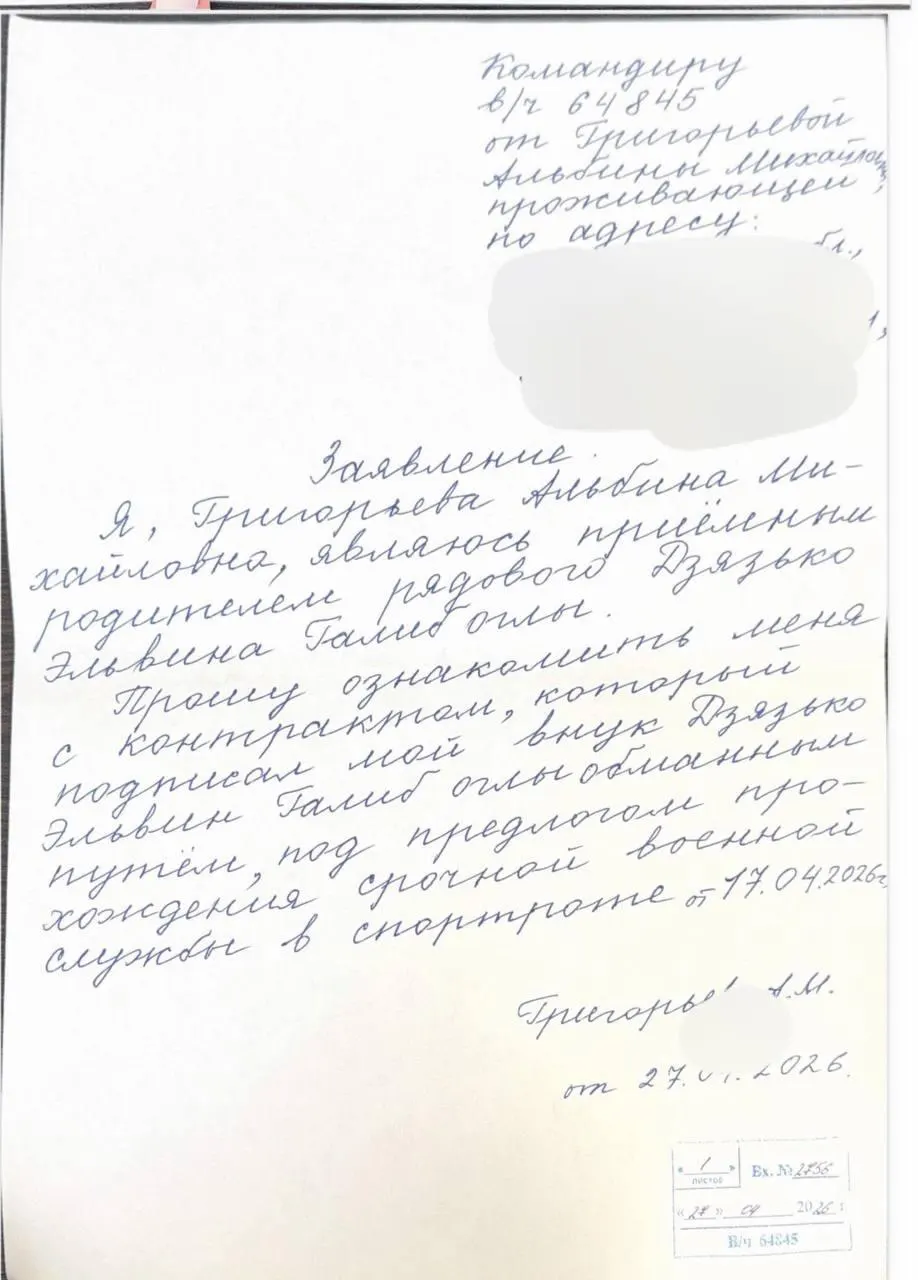 Командиру
в/ч 64845
от Григорьевой
Альбины Михайловны,
проживающей
по адресу:
бл.,
Заявление.
Я, Григорьева Альбина Ми-
хайловна, являюсь приёмным
родителем рядового Дзязько
Эльвина Галиб оглы.
Прошу ознакомить меня
с контрактом, который
подписал мой внук Дзязько
Эльвин Галиб оглы обманным
путём, под предлогом про-
хождения срочной военной
службы в спортроте от 17.04.2026г.
Григорье А.М.
от 27. 2026.
« 1 » Вх. № 2756
листов
« 27 » 04 2026 г
В/ч 64845